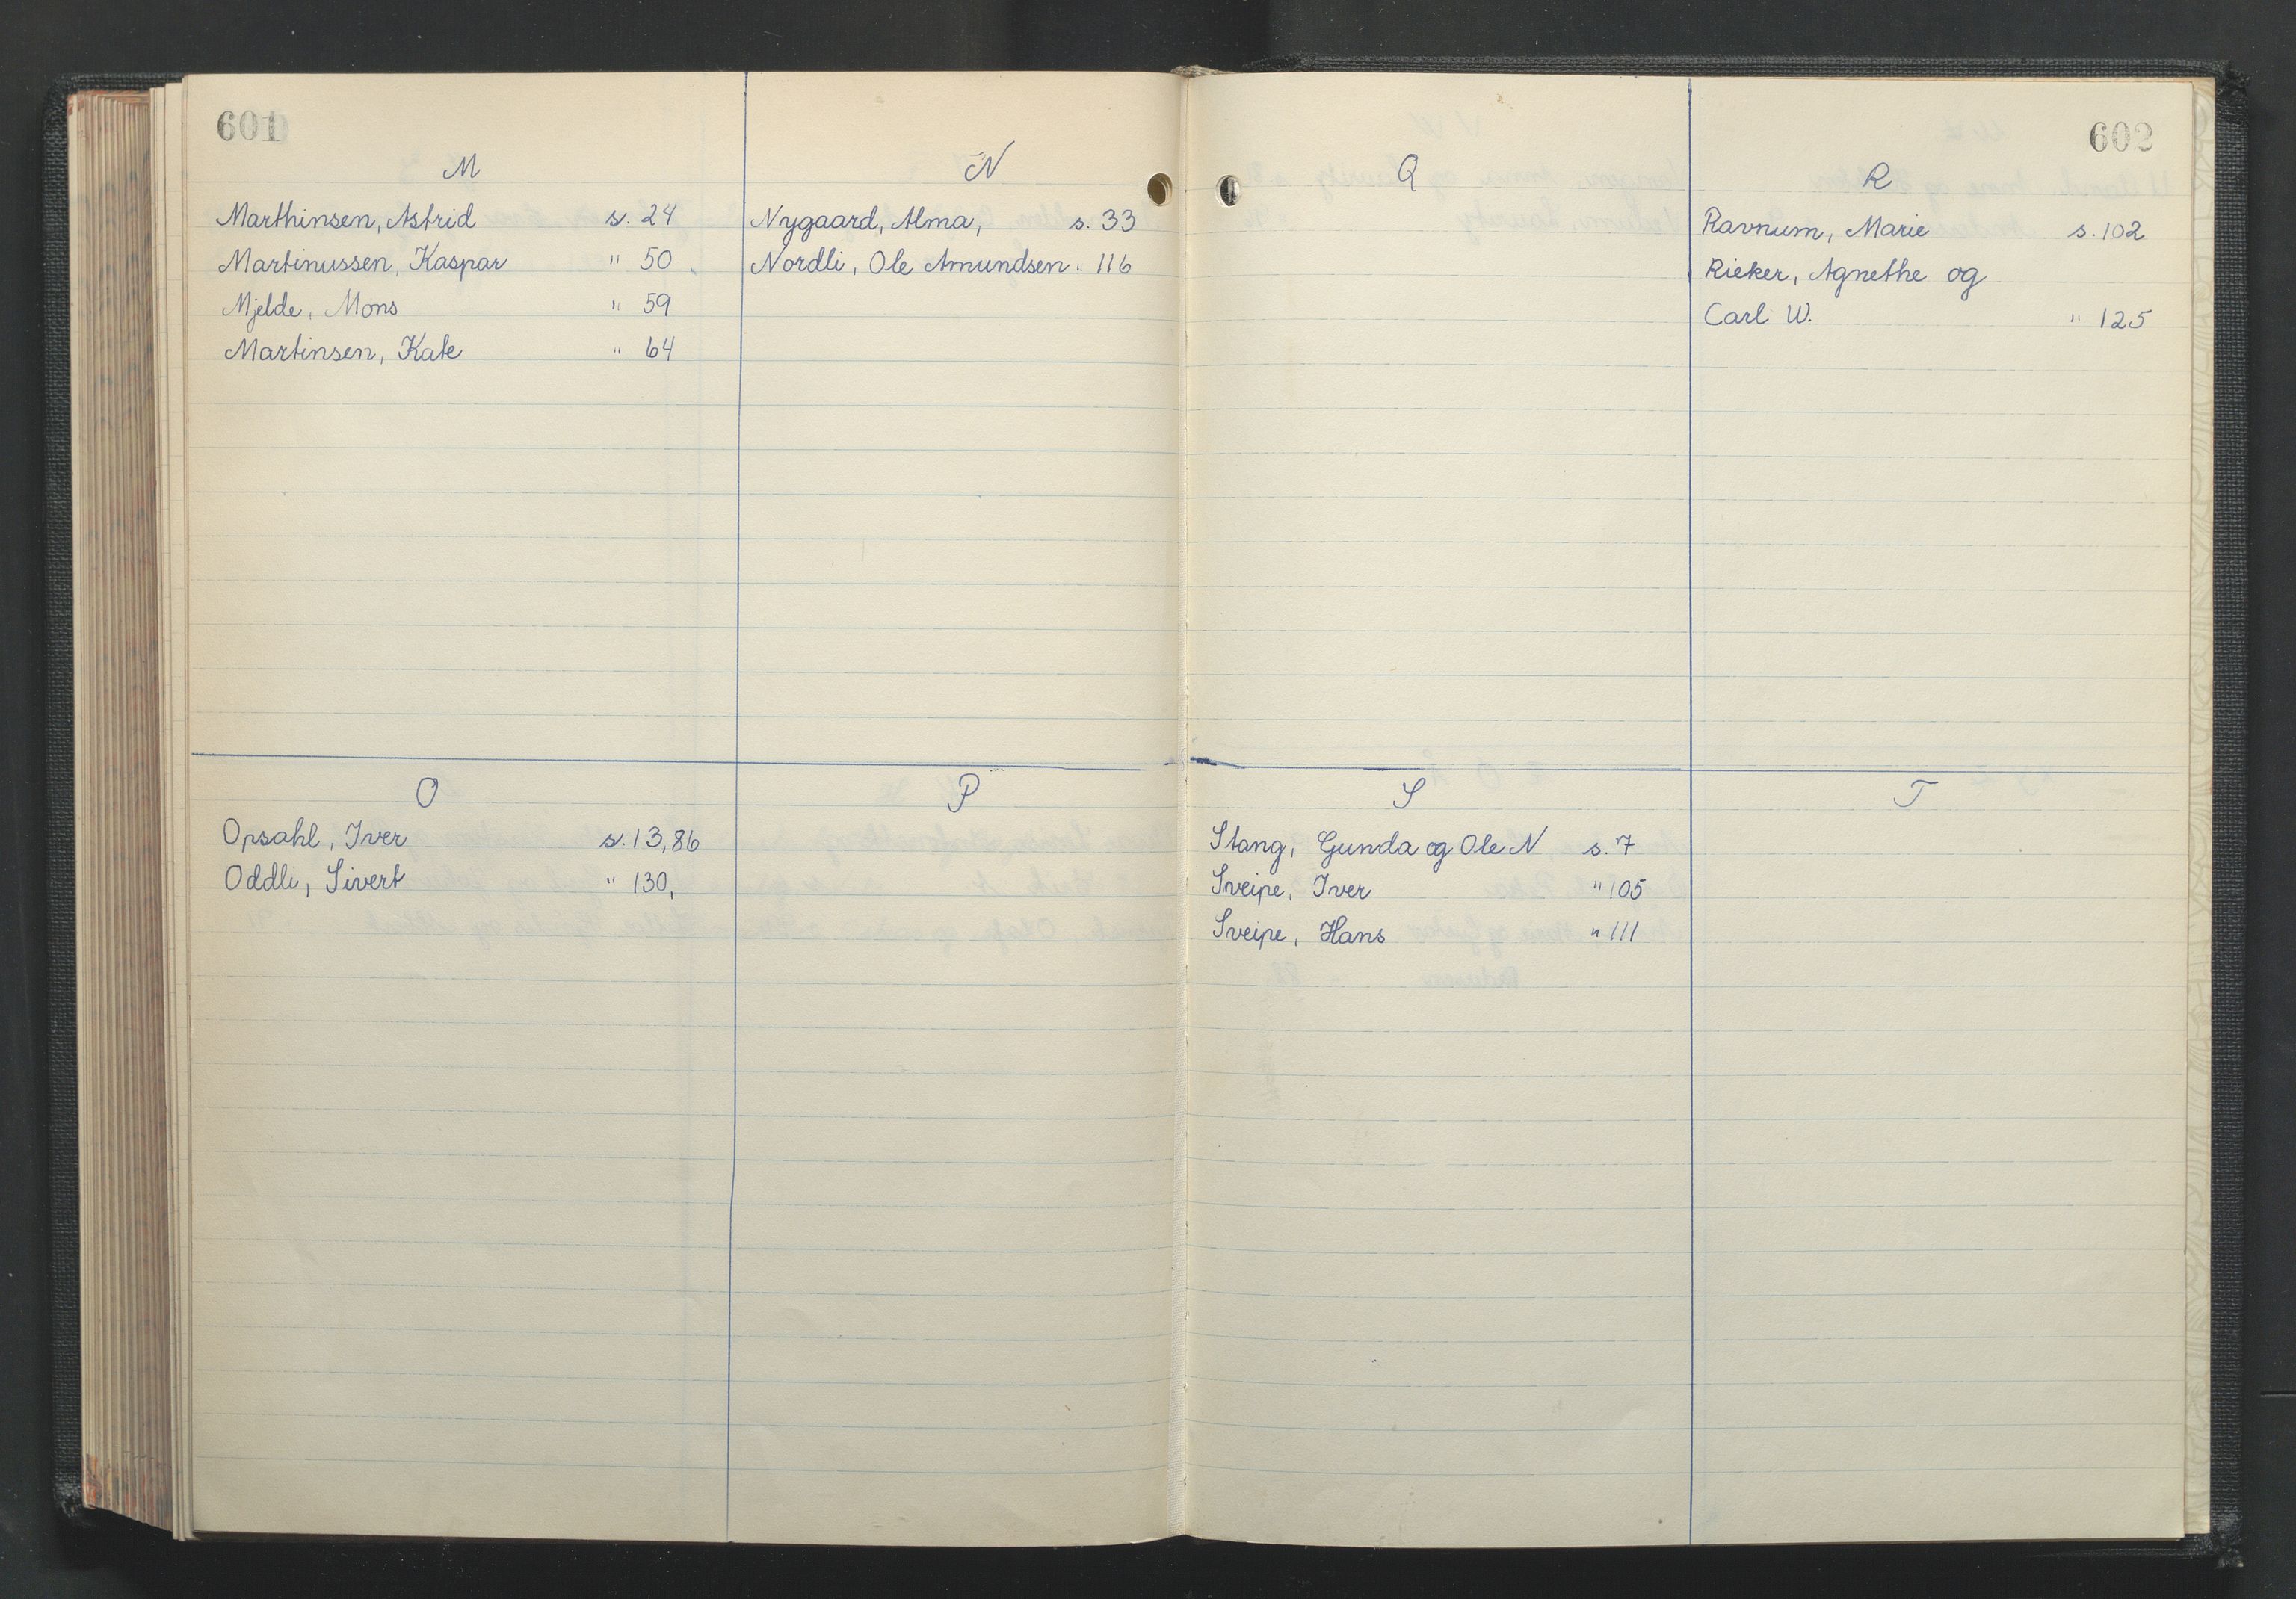 601
M
Marthinsen, Astrid s. 24
Martinussen, Kaspar " 50
Mjelde, Mons " 59
Martinsen, Kate " 64
N
Nygaard, Alma, s. 33
Nordli, Ole Amundsen " 116
O
Opsahl, Iver s. 13, 86
Oddli, Sivert " 130,
P
602
Q
R
Ravnum, Marie s. 102
Rieker, Agnethe og
Carl W. " 125
S
Stang, Gunda og Ole N s. 7
Sveipe, Iver " 105
Sveipe, Hans " 111
T